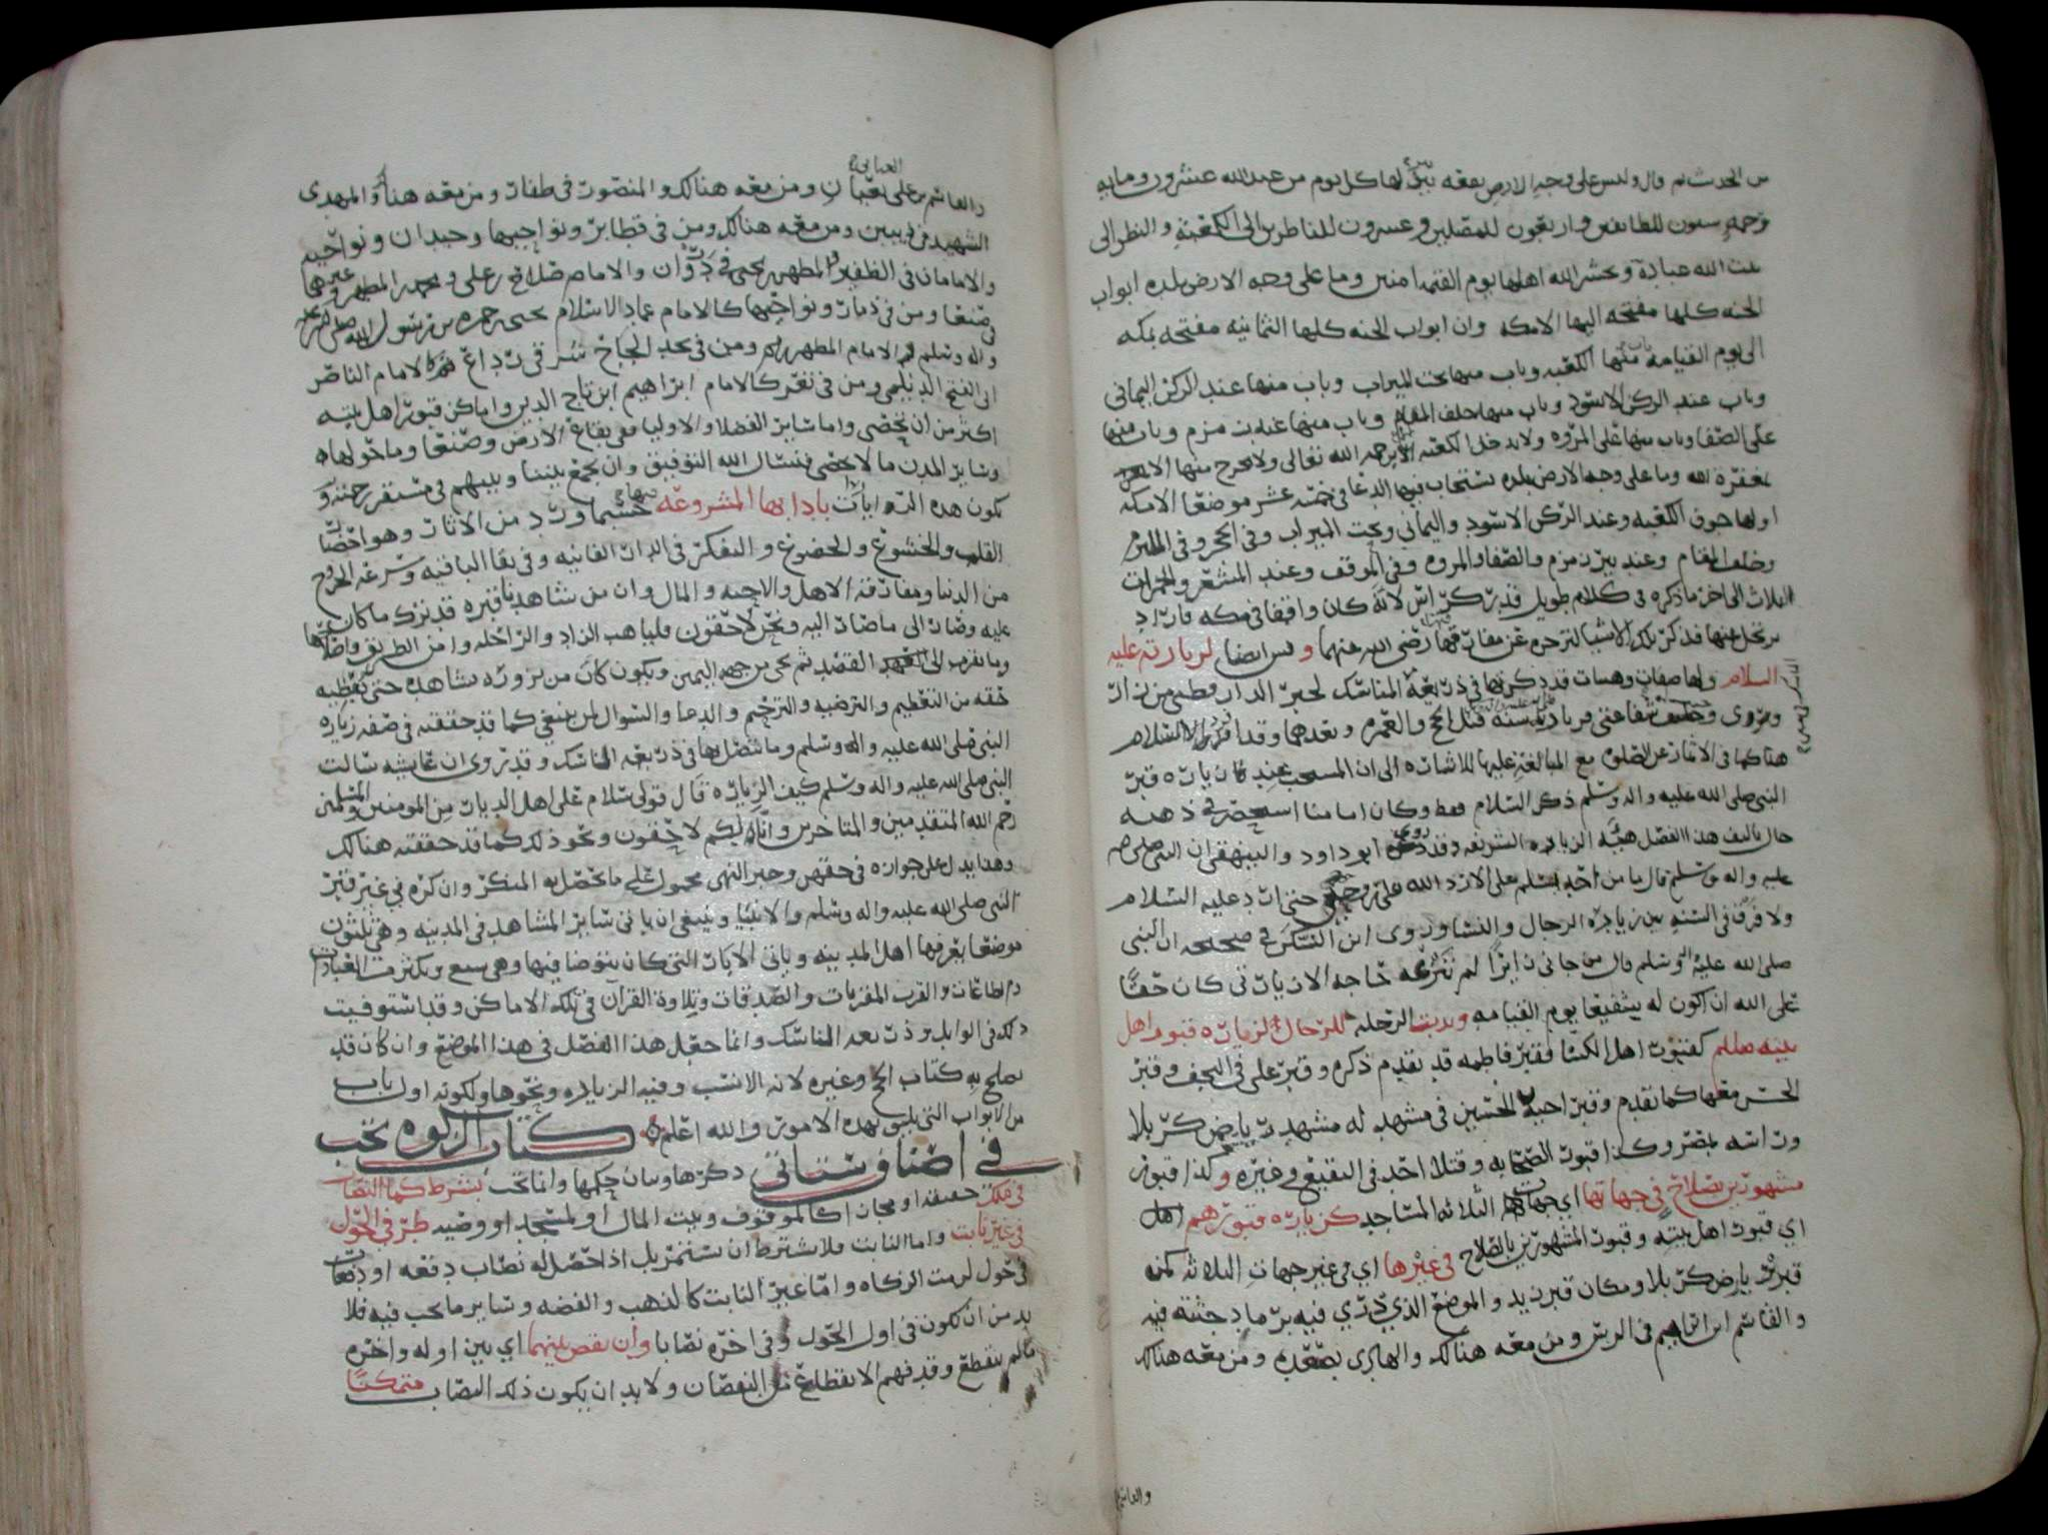 من الحدث ثم قال وليس على وجه الارض بقعه ينزل لها كل يوم من عند الله عشرون ومايه
رحمه ستون للطايفين واربعون للمصلين وعشرون للناظرين الى الكعبة والنظر الى
بيت الله عبادة ويحشر الله اهلها يوم القيمه امنين وما على وجه الارض بلده ابواب
الجنه كلها مفتحه اليها الا مكه وان ابواب الجنه كلها الثمانيه مفتحه بمكه
الى يوم القيامة باب منها الكعبه وباب منها تحت الميزاب وباب منها عند الركن اليماني
وباب عند الركن الاسود وباب منها خلف المقام وباب منها عند زمزم وباب منها
على الصفا وباب منها على المروه ولا يدخل الكعبه الا برحمه الله تعالى ولا يخرج منها الا
بمغفرة الله وما على وجه الارض بلده يستجاب فيها الدعا في خمسه عشر موضعا الا مكه
اولها جوف الكعبه وعند الركن الاسود واليماني وتحت الميزاب وفي الحجر وفي الملتزم
وخلف المقام وعند بير زمزم والصفا والمروه وفي الموقف وعند المشعر والجمرات
الثلاث الى اخر ما ذكره في كلام طويل لانه كان واقفا في مكه فاراد
يرتحل عنها فذكر تلك الاشيا رضي الله عنهما وندب ايضا لزيارته عليه
السلام ولها صفات وهيات قد ذكرتها في ذريعة المناسك لخبر الدارقطني من زار
قبل الحج والعمره وبعدهما
هنا كما في الاثمار عن الصلوة مع المبالغة عليها للاشاره الى ان المستحب عند زيارة قبر
النبي صلى الله عليه واله وسلم ذكر السلام فقط وكان امامنا استحضر في ذهنه
حال تاليف هذا الفصل هيئه الزياره الشريفه وقد روى ابو داود والبيهقي ان النبي صلى الله
عليه واله وسلم قال ما من احد يسلم علي الا رد الله علي روحي حتى ارد عليه السلام
ولا فرق في السنه بين زيارة الرجال والنسا وروى ابن السكن في صحيحه ان النبي
صلى الله عليه واله وسلم قال من جاني زايرا لم تنزعه حاجه الا زيارتي كان حقا
على الله ان اكون له شفيعا يوم القيامه وندب الرحله للرجال لزياره قبور اهل
بيته صللم كقبور اهل الكسا فقبر فاطمه قد تقدم ذكره وقبر علي في النجف وقبر
الحسن معها كما تقدم وقبر اخيه الحسين في مشهد له مشهد بارض كربلا
وراسه بمصر وكذا قبور الصحابه وقتلا احد في البقيع وغيره وكذا قبور
مشهورين بصلاح في جهاتها اي جهات الثلاثه المساجد كزيارة قبورهم اهل
اي قبور اهل بيته وقبور المشهورين بالصلاح في غيرها اي في غير جهات الثلاثه كمن
قبر بارض كربلا ومكان قبر زيد والموضع الذي ذري فيه رماد جثته فيه
والقاسم ابن ابراهيم في الرس ومن معه هنالك والهادي بصعده ومن معه هنالك
والقاسم
العياني
والقاسم بن علي بعيان ومن معه هنالك والمنصور في ظفار ومن معه هنالك والمهدي
الشهيد في ذيبين ومن معه هنالك ومن في قطابر ونواحيها وحيدان ونواحيه
والامامان في الظفير والمطهر بن يحيى في ذروان والامام صلاح بن علي ومحمد بن المطهر وغيرهما
في صنعا ومن في ذمار ونواحيها كالامام عماد الاسلام يحيى بن حمزه من رسول الله صلى الله عليه
واله وسلم ثم الامام المطهر ومن في الامام الناصر
ابي الفتح الديلمي ومن في تعز كالامام ابراهيم ابن تاج الدين واماكن قبور اهل بيته
اكثر من ان تحصى واما ساير الفضلا والاوليا ففي بقاع الارض وصنعا وما حولها
وساير المدن ما لا يحصى فنسال الله التوفيق وان يجمع بيننا وبينهم في مستقر رحمته و
تكون هذه الزيارات بادابها المشروعه فيها حسبما ورد من الاثار وهو احضار
القلب والخشوع والخضوع والتفكر في الدار الفانيه وفي بقا الباقيه وسرعه الخروج
من الدنيا ومفارقة الاهل والاحبه والمال وان من شاهدنا قبره قد ترك ما كان
عليه وصار الى ما صار اليه ونحن لاحقون فليتاهب الزاد والراحله وامن الطريق
القصد ثم جهه اليمين ويكون كان من يزوره يشاهده حتى يعطيه
حقه من التعظيم والترضيه والترحيم والدعا والسوال لمن ينبغي كما قد حققته في صفه زياره
النبي صلى الله عليه واله وسلم وما يتصل بها في ذريعه المناسك وقد روي ان عايشه سالت
النبي صلى الله عليه واله وسلم كيف الزيارة قال قولي سلام على اهل الديار من المومنين والمسلمين
رحم الله المتقدمين والمتاخرين وانا بكم لاحقون ونحو ذلك كما قد حققته هنالك
وهذا يدل على جوازه في حقهن وخبر النهي محمول على ما يحصل به المنكر وان كره في غير قبر
النبي صلى الله عليه واله وسلم والانبيا وينبغي ان ياتي ساير المشاهد في المدينه وهي ثلثون
موضعا يعرفها اهل المدينه وياتي الابار التي كان يتوضا فيها وهي سبع ويكثر من العبادات
والطاعات والقرب المقربات والصدقات وتلاوة القران في تلك الاماكن وقد استوفيت
ذلك في الوابل وذريعه المناسك وانما جعل هذا الفصل في هذا الموضع وان كان قد
يصلح به كتاب الحج وغيره لانه الانسب وفيه الزياره ونحوها ولكونه اول باب
من الابواب التي يليق بهذه الامور والله اعلم كتاب الزكوه تجب
في اصناف ستاتي ذكرها وبيان حكمها وانما تجب بشرط كمال النصاب
في ملك حقيقه او مجازا كالموقوف وبيت المال او لمسجد او وصيه طرفي الحول
في غير نابت واما النابت فلا يشترط ان يستمر بل اذا حصل له نصاب دفعه او دفعات
في حول لزمت الزكاه واما غير النابت كالذهب والفضه وساير ما يجب فيه فلا
بد من ان تكون في اول الحول وفي اخره نصابا وان نقص بينهما اي بين اوله واخره
مالم ينقطع وقد فهم الانقطاع من النقصان ولا بد ان يكون ذلك النصاب متمكنا